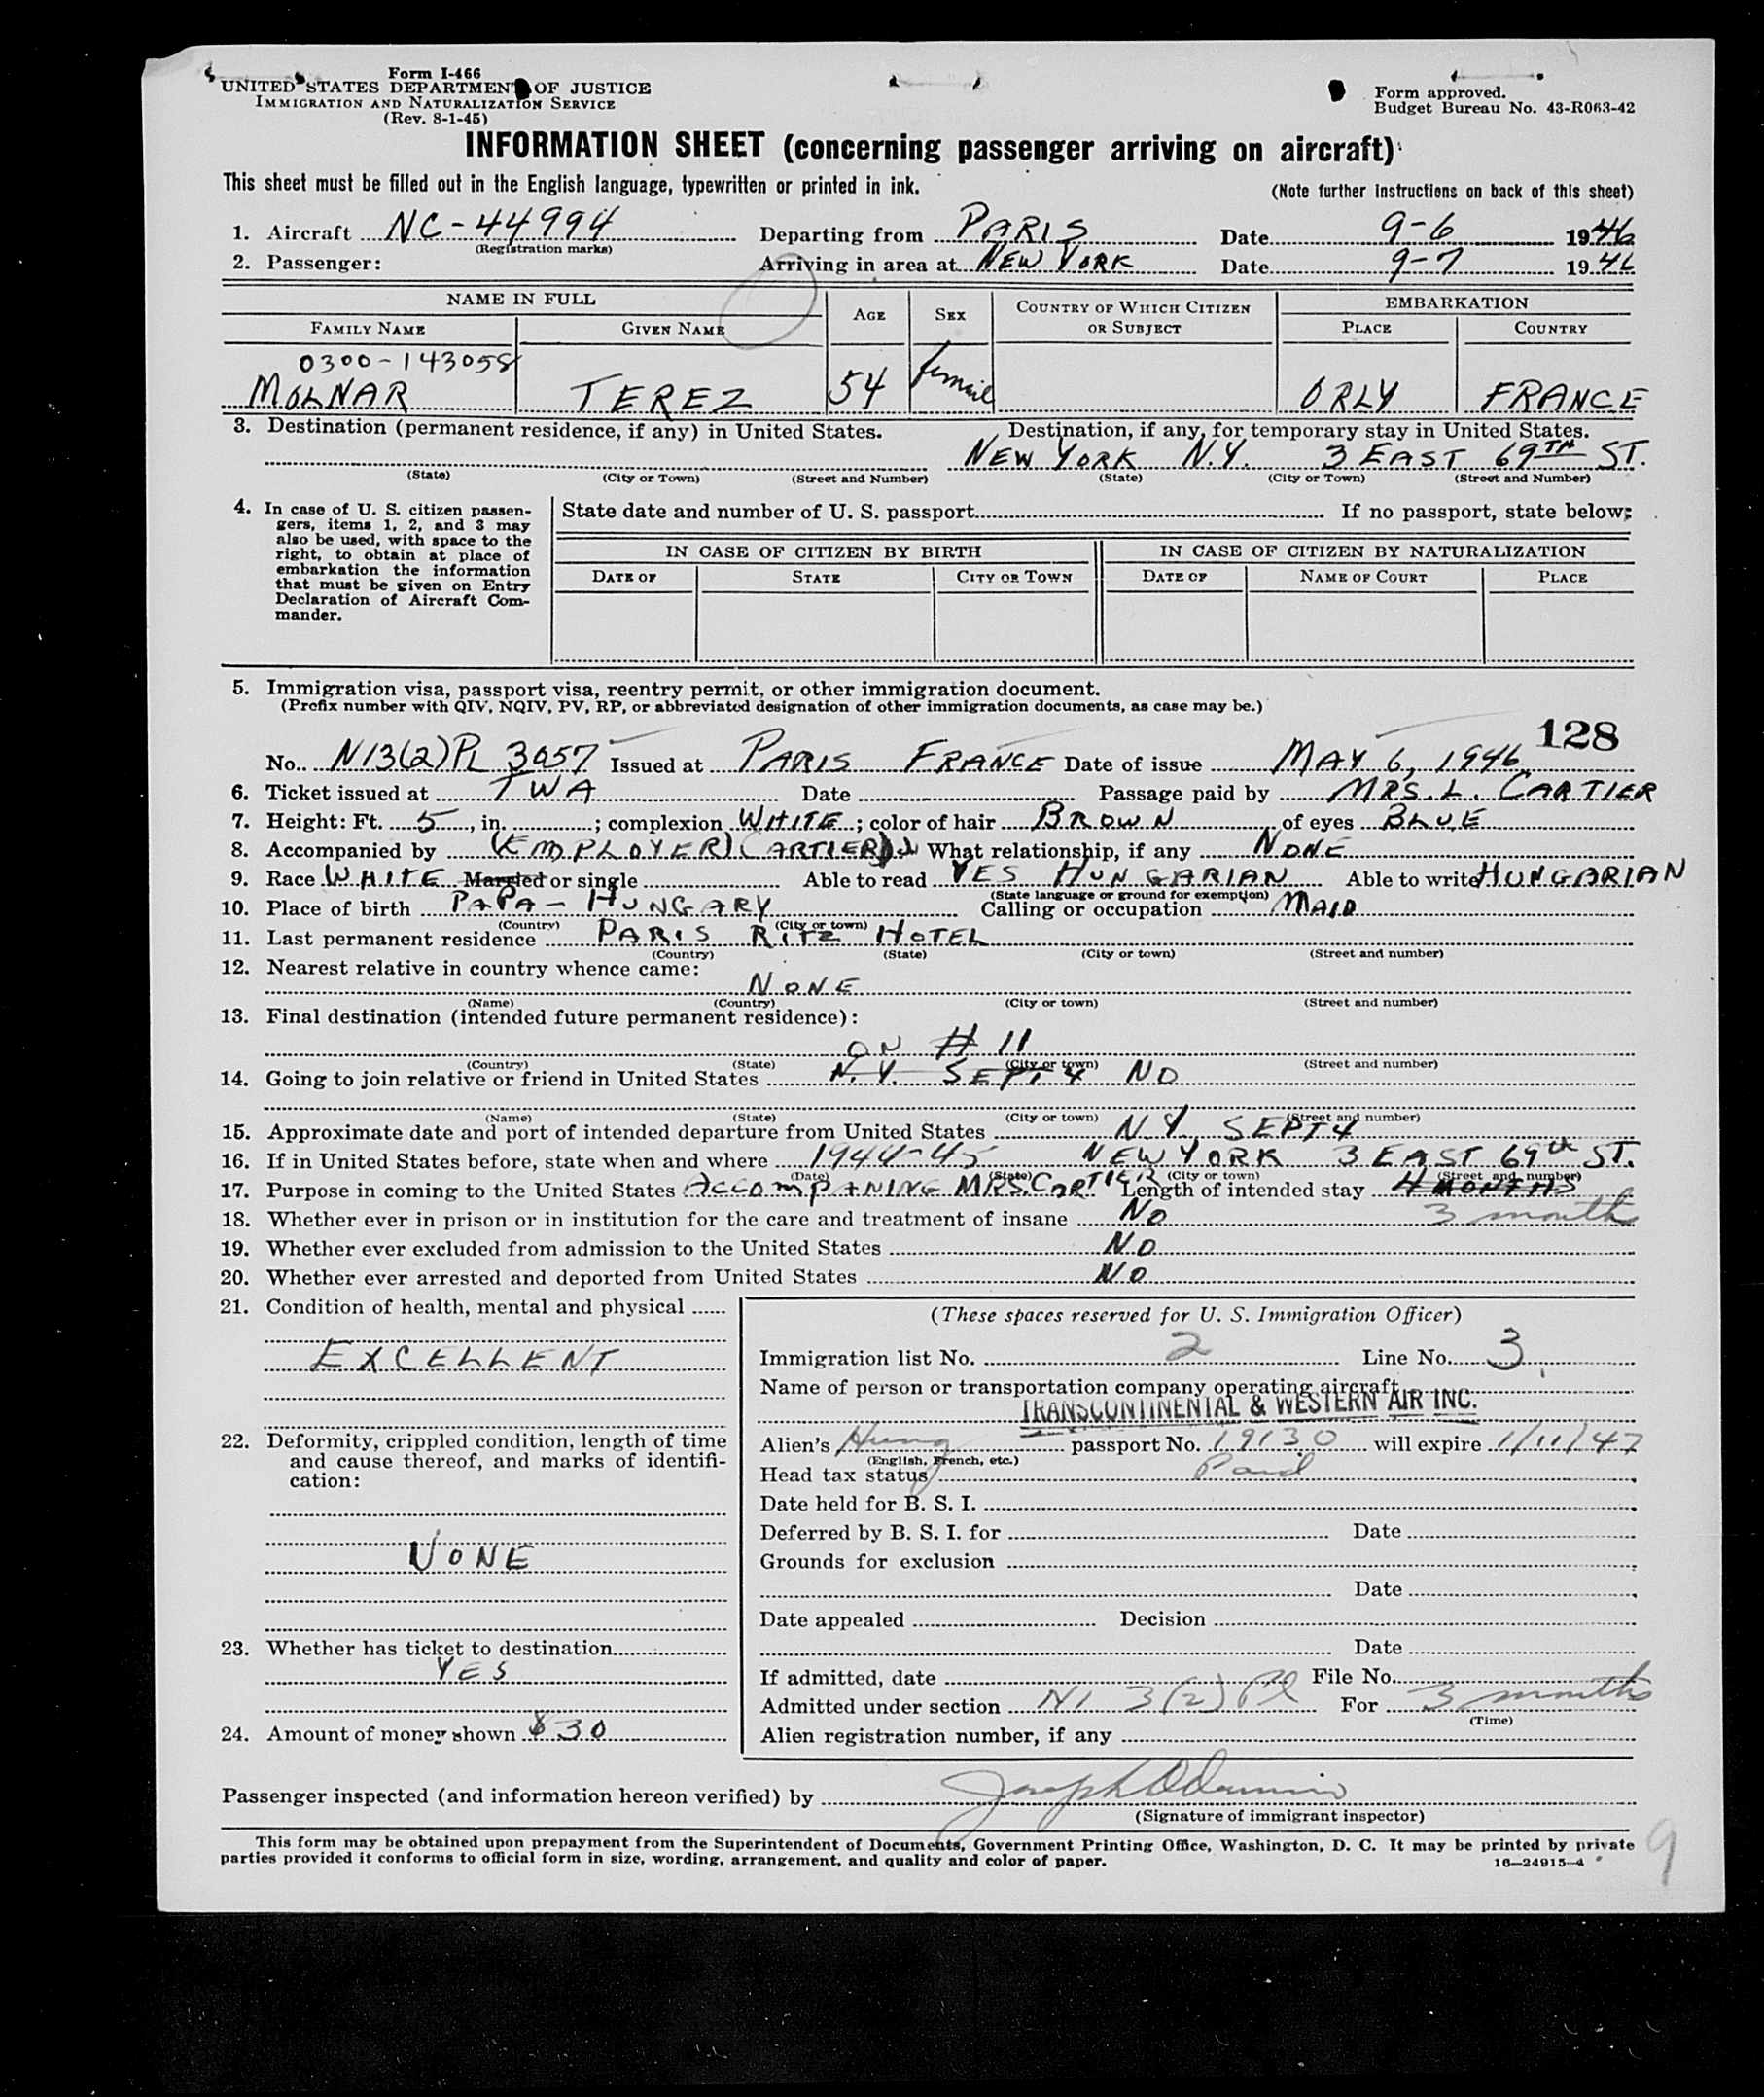 Form I-466
UNITED STATES DEPARTMENT OF JUSTICE
IMMIGRATION AND NATURALIZATION SERVICE
(Rev. 8-1-45)
Form approved.
Budget Bureau No. 43-R063-42
INFORMATION SHEET (concerning passenger arriving on aircraft)
This sheet must be filled out in the English language, typewritten or printed in ink. (Note further instructions on back of this sheet)
1. Aircraft NC-44994 Departing from PARIS Date 9-6 1946
(Registration marks)
2. Passenger: Arriving in area at NEW YORK Date 9-7 1946
NAME IN FULL AGE SEX COUNTRY OF WHICH CITIZEN OR SUBJECT EMBARKATION
FAMILY NAME GIVEN NAME PLACE COUNTRY
0300-143058
MOLNAR TEREZ 54 femail ORLY FRANCE
3. Destination (permanent residence, if any) in United States. Destination, if any, for temporary stay in United States.
NEW YORK N.Y. 3 EAST 69TH ST.
(State) (City or Town) (Street and Number) (State) (City or Town) (Street and Number)
4. In case of U. S. citizen passen-
gers, items 1, 2, and 3 may
also be used, with space to the
right, to obtain at place of
embarkation the information
that must be given on Entry
Declaration of Aircraft Com-
mander.
State date and number of U. S. passport If no passport, state below:
IN CASE OF CITIZEN BY BIRTH IN CASE OF CITIZEN BY NATURALIZATION
DATE OF STATE CITY OR TOWN DATE OF NAME OF COURT PLACE
5. Immigration visa, passport visa, reentry permit, or other immigration document.
(Prefix number with QIV, NQIV, PV, RP, or abbreviated designation of other immigration documents, as case may be.)
128
No. N13(2)PL 3057 Issued at PARIS FRANCE Date of issue MAY 6, 1946
6. Ticket issued at TWA Date Passage paid by MRS L. CARTIER
7. Height: Ft. 5, in. ; complexion WHITE; color of hair BROWN of eyes BLUE
8. Accompanied by (EMPLOYER) CARTIER) What relationship, if any NONE
9. Race WHITE Married or single Able to read YES HUNGARIAN Able to write HUNGARIAN
(State language or ground for exemption)
10. Place of birth PAPA - HUNGARY Calling or occupation MAID
(Country) (City or town)
11. Last permanent residence PARIS RITZ HOTEL
(Country) (State) (City or town) (Street and number)
12. Nearest relative in country whence came:
NONE
(Name) (Country) (City or town) (Street and number)
13. Final destination (intended future permanent residence):
ON # 11
(Country) (State) (City or town) (Street and number)
14. Going to join relative or friend in United States N.Y. SEPT 4 NO
(Name) (State) (City or town) (Street and number)
15. Approximate date and port of intended departure from United States N.Y. SEPT 4
16. If in United States before, state when and where 1944-45 NEW YORK 3 EAST 69th ST.
(Date) (State) (City or town) (Street and number)
17. Purpose in coming to the United States ACCOMPANING MRS. CARTIER Length of intended stay 4 MONTHS
18. Whether ever in prison or in institution for the care and treatment of insane NO 3 months
19. Whether ever excluded from admission to the United States NO
20. Whether ever arrested and deported from United States NO
21. Condition of health, mental and physical
EXCELLENT
22. Deformity, crippled condition, length of time
and cause thereof, and marks of identifi-
cation:
NONE
23. Whether has ticket to destination
YES
24. Amount of money shown $30
(These spaces reserved for U. S. Immigration Officer)
Immigration list No. 2 Line No. 3
Name of person or transportation company operating aircraft
TRANSCONTINENTAL & WESTERN AIR INC.
Alien's Hung passport No. 19130 will expire 1/11/47
(English, French, etc.)
Head tax status Paid
Date held for B. S. I.
Deferred by B. S. I. for Date
Grounds for exclusion
Date
Date appealed Decision
Date
If admitted, date File No.
Admitted under section NI 3(2) Pl For 3 months
(Time)
Alien registration number, if any
Passenger inspected (and information hereon verified) by
(Signature of immigrant inspector)
This form may be obtained upon prepayment from the Superintendent of Documents, Government Printing Office, Washington, D. C. It may be printed by private
parties provided it conforms to official form in size, wording, arrangement, and quality and color of paper. 16—24915-4
9